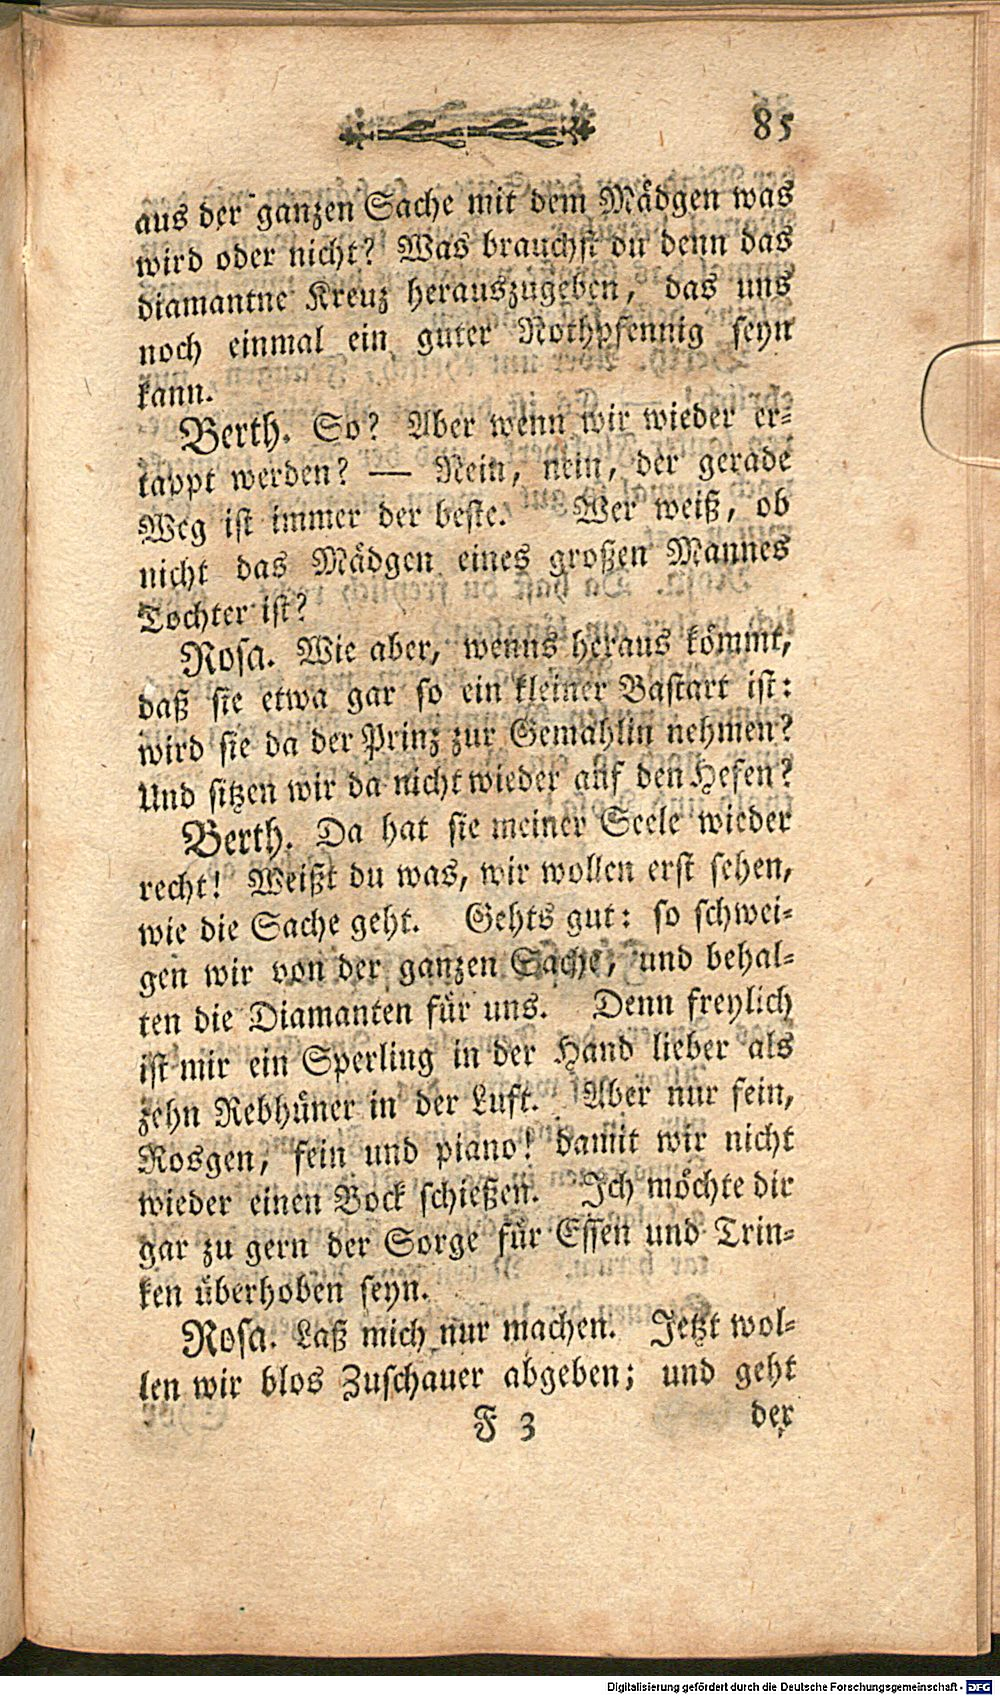 85
aus der ganzen Sache mit dem Mädgen was
wird oder nicht? Was brauchst du denn das
diamantne Kreuz herauszugeben, das uns
noch einmal ein guter Nothpfennig seyn
kann.
Berth. So? Aber wenn wir wieder er-
tappt werden? — Nein, nein, der gerade
Weg ist immer der beste. Wer weiß, ob
nicht das Mädgen eines großen Mannes
Tochter ist?
Rosa. Wie aber, wenns heraus kömmt,
daß sie etwa gar so ein kleiner Bastart ist:
wird sie da der Prinz zur Gemahlin nehmen?
Und sitzen wir da nicht wieder auf den Hefen?
Berth. Da hat sie meiner Seele wieder
recht! Weißt du was, wir wollen erst sehen,
wie die Sache geht. Gehts gut: so schwei-
gen wir von der ganzen Sache, und behal-
ten die Diamanten für uns. Denn freylich
ist mir ein Sperling in der Hand lieber als
zehn Rebhüner in der Luft. Aber nur fein,
Rosgen, fein und piano! damit wir nicht
wieder einen Bock schießen. Ich möchte dir
gar zu gern der Sorge für Essen und Trin-
ken überhoben seyn.
Rosa. Laß mich nur machen. Jetzt wol-
len wir blos Zuschauer abgeben; und geht
F 3
der
Digitalisierung gefördert durch die Deutsche Forschungsgemeinschaft - DFG